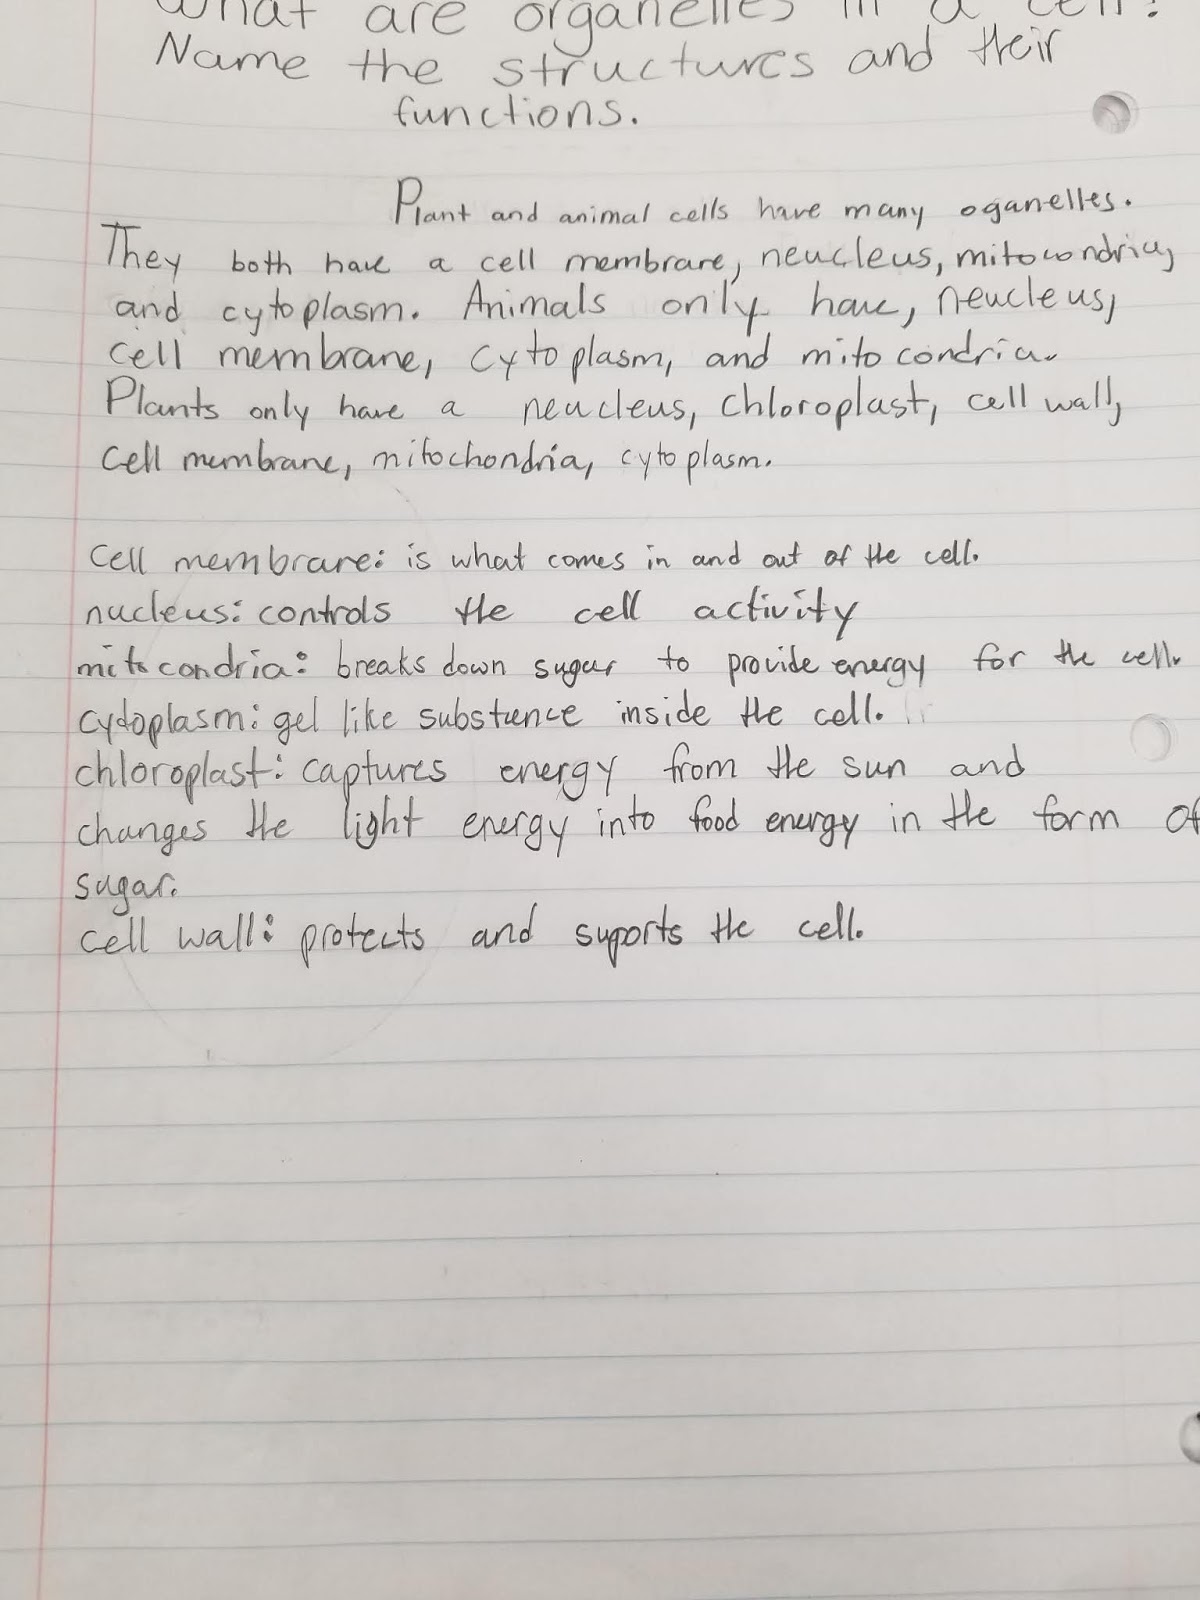 What are organelles in a cell?
Name the structures and their
functions.
Plant and animal cells have many oganelles.
They both have a cell membrare, neucleus, mitocondria,
and cytoplasm. Animals only have, neucleus,
cell membrane, cytoplasm, and mitocondria.
Plants only have a neucleus, chloroplast, cell wall,
cell membrane, mitochondria, cytoplasm.
cell membrare: is what comes in and out of the cell.
nucleus: controls the cell activity
mitocondria: breaks down sugar to provide energy for the cell.
cydoplasm: gel like substence inside the cell.
chloroplast: captures energy from the sun and
changes the light energy into food energy in the form of
sugar.
cell wall: protects and suports the cell.